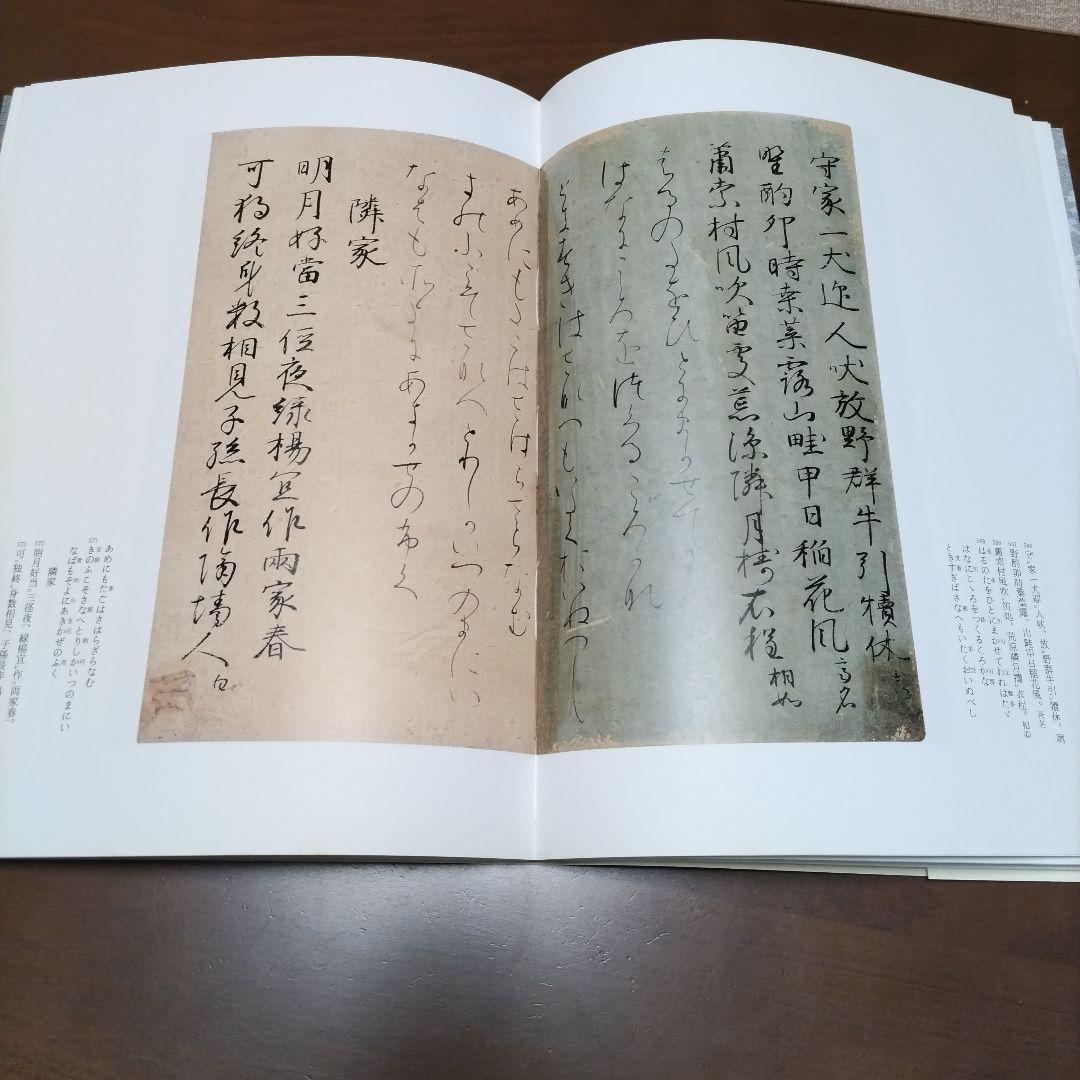 守家一犬迎人吠、放野群牛引犢休。
野酌卯時桑葉露、山畦甲日稲花風。斉名
蕭索村風吹笛処、荒涼隣月擣衣程。相如
はるのたをひとにまかせてわれはたゞ
はなにこゝろをつくるころかな
ときすぎばさなへもいたくおいぬべし
守家一犬迎人吠放野群牛引犢休
野酌卯時桑葉露山畦甲日稲花風 斉名
蕭索村風吹笛處荒涼隣月擣衣程 相如
はるのたをひとにまかせてわ
はなにこゝろをつくるころかな
ときすぎばさなへもいたくおいぬべし
あめにもたごはさはらざらなむ
きのふこそさなへとりしかいつのまにい
なばもそよにあきかぜのふく
隣家
明月好當三徑夜緑楊宜作兩家春
可獨終身數相見子孫長作隔墻人 白
571 あめにもたごはさはらざらなむ
きのふこそさなへとりしかいつのまにい
なばもそよにあきかぜのふく
隣家
572 明月好当三径夜、緑楊宜作両家春。
573 可独終身数相見、子孫長作